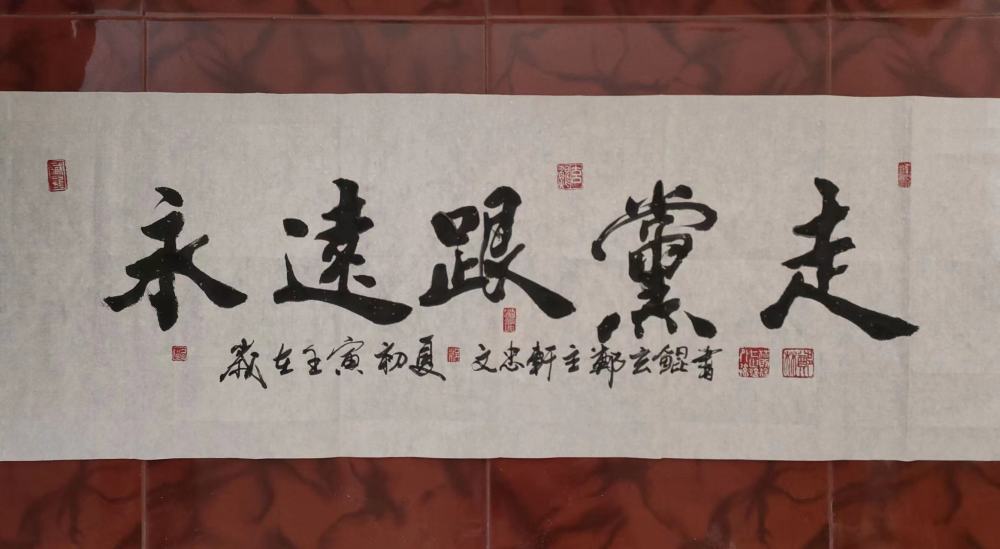 永遠跟黨走
歲在壬寅初夏 文忠軒主鄭玄鯤書